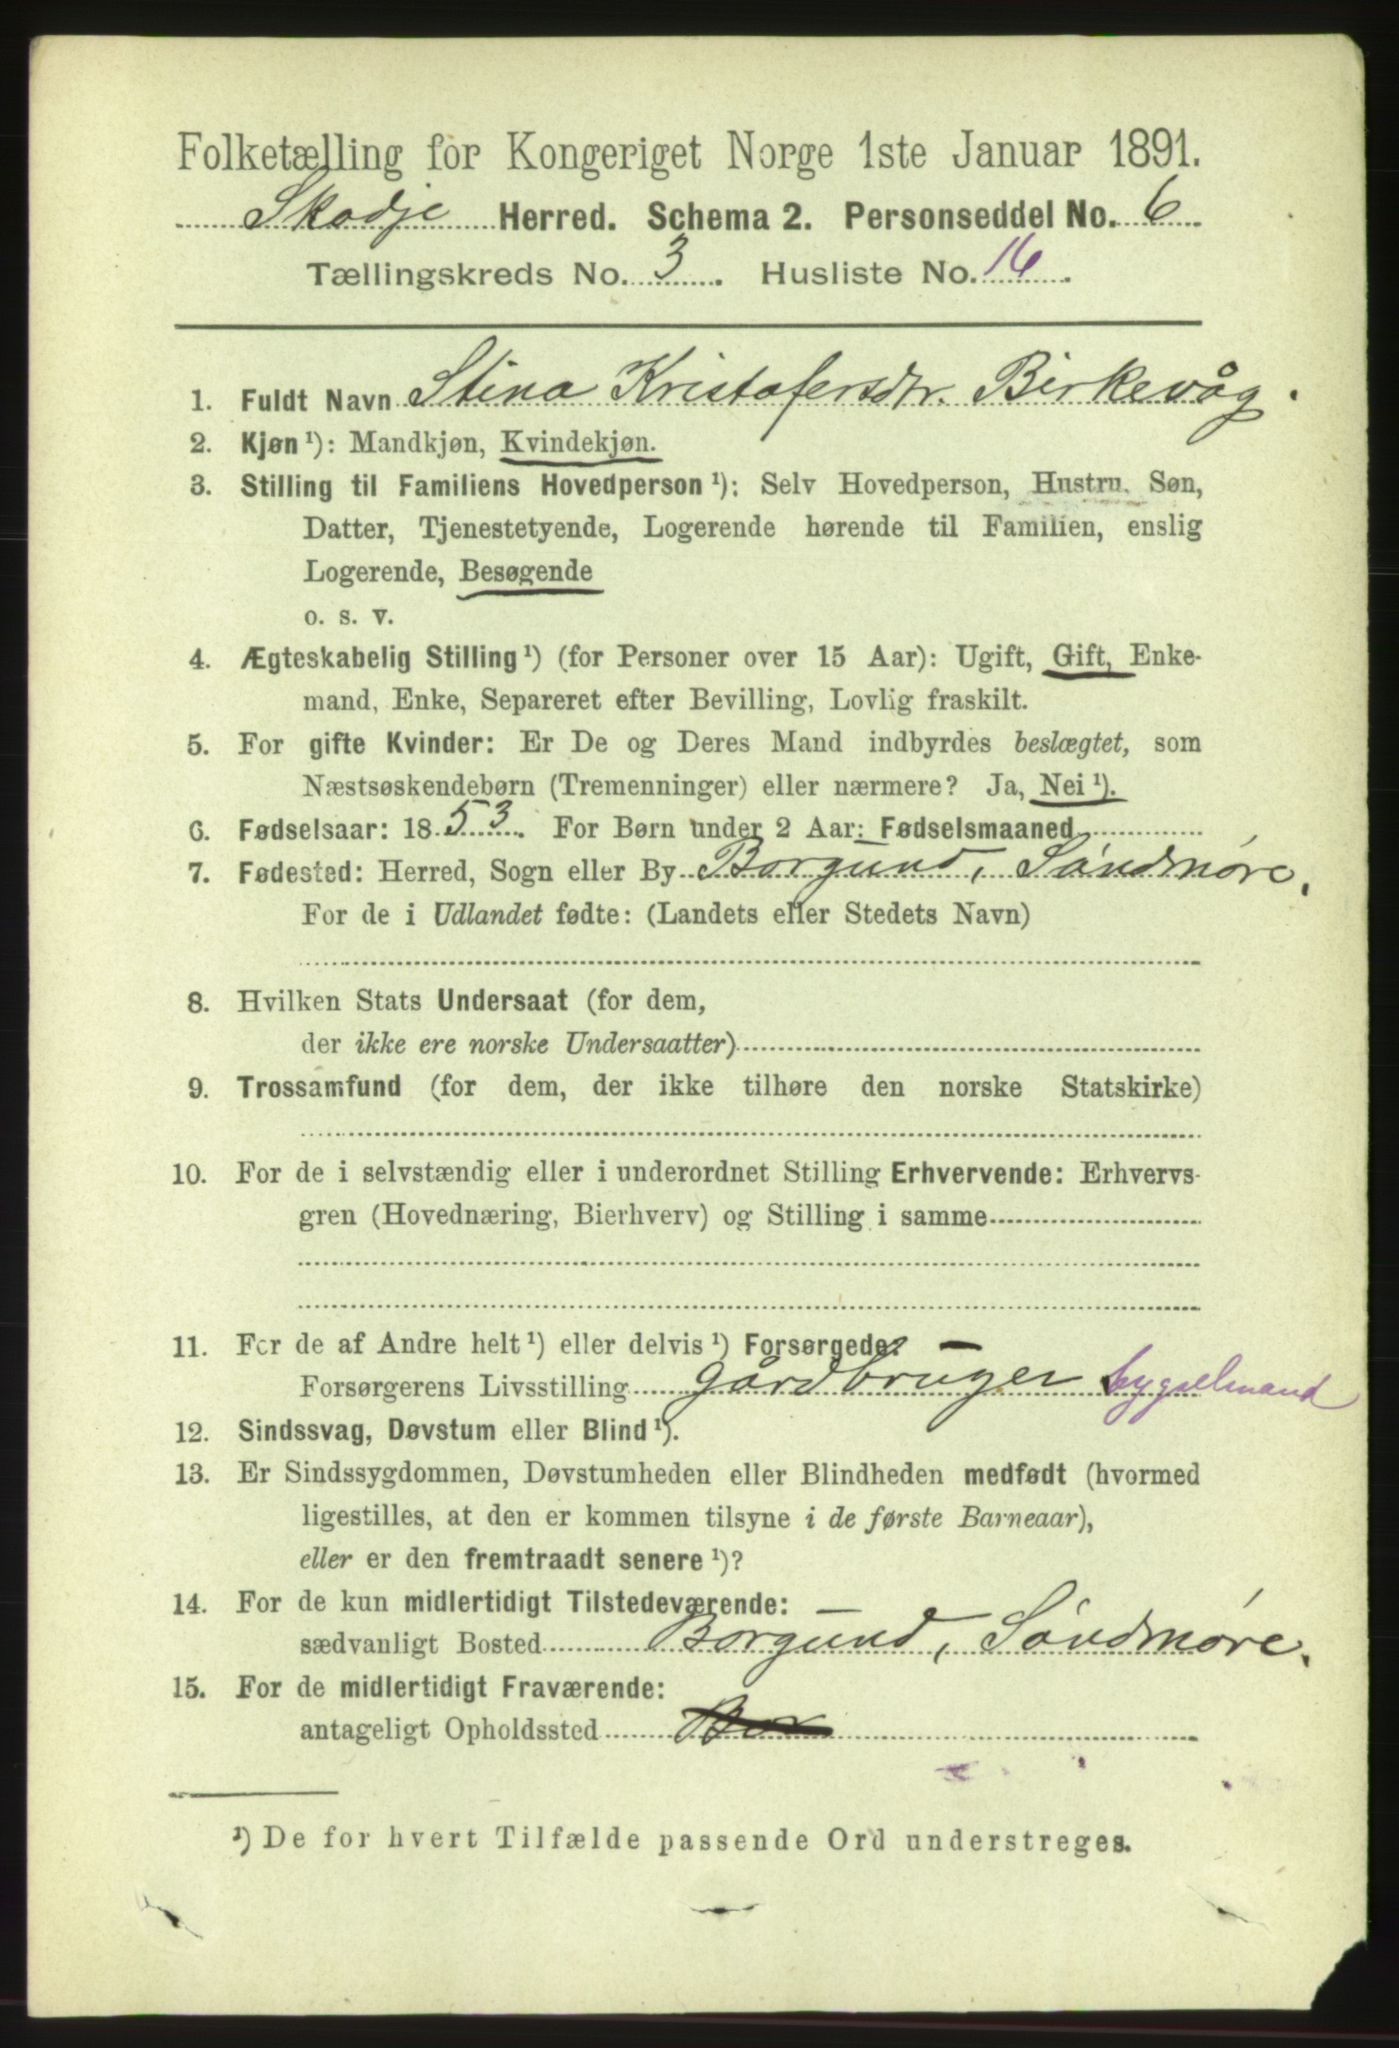 Folketælling for Kongeriget Norge 1ste Januar 1891.
Skodje Herred. Schema 2. Personseddel No. 6
Tællingskreds No. 3. Husliste No. 16.
1. Fuldt Navn Stina Kristofersdtr. Birkevåg.
2. Kjøn ¹): Mandkjøn, Kvindekjøn.
3. Stilling til Familiens Hovedperson ¹): Selv Hovedperson, Hustru, Søn,
Datter, Tjenestetyende, Logerende hørende til Familien, enslig
Logerende, Besøgende
o. s. v.
4. Ægteskabelig Stilling ¹) (for Personer over 15 Aar): Ugift, Gift, Enke-
mand, Enke, Separeret efter Bevilling, Lovlig fraskilt.
5. For gifte Kvinder: Er De og Deres Mand indbyrdes beslægtet, som
Næstsøskendebørn (Tremenninger) eller nærmere? Ja, Nei ¹).
6. Fødselsaar: 1853. For Børn under 2 Aar: Fødselsmaaned
7. Fødested: Herred, Sogn eller By Borgund, Søndmøre.
For de i Udlandet fødte: (Landets eller Stedets Navn)
8. Hvilken Stats Undersaat (for dem,
der ikke ere norske Undersaatter)
9. Trossamfund (for dem, der ikke tilhøre den norske Statskirke)
10. For de i selvstændig eller i underordnet Stilling Erhvervende: Erhvervs-
gren (Hovednæring, Bierhverv) og Stilling i samme
11. For de af Andre helt ¹) eller delvis ¹) Forsørgede:
Forsørgerens Livsstilling gårdbruger bygselmand
12. Sindssvag, Døvstum eller Blind ¹).
13. Er Sindssygdommen, Døvstumheden eller Blindheden medfødt (hvormed
ligestilles, at den er kommen tilsyne i de første Barneaar),
eller er den fremtraadt senere ¹)?
14. For de kun midlertidigt Tilstedeværende:
sædvanligt Bosted Borgund, Søndmøre.
15. For de midlertidigt Fraværende:
antageligt Opholdssted Bor
¹) De for hvert Tilfælde passende Ord understreges.